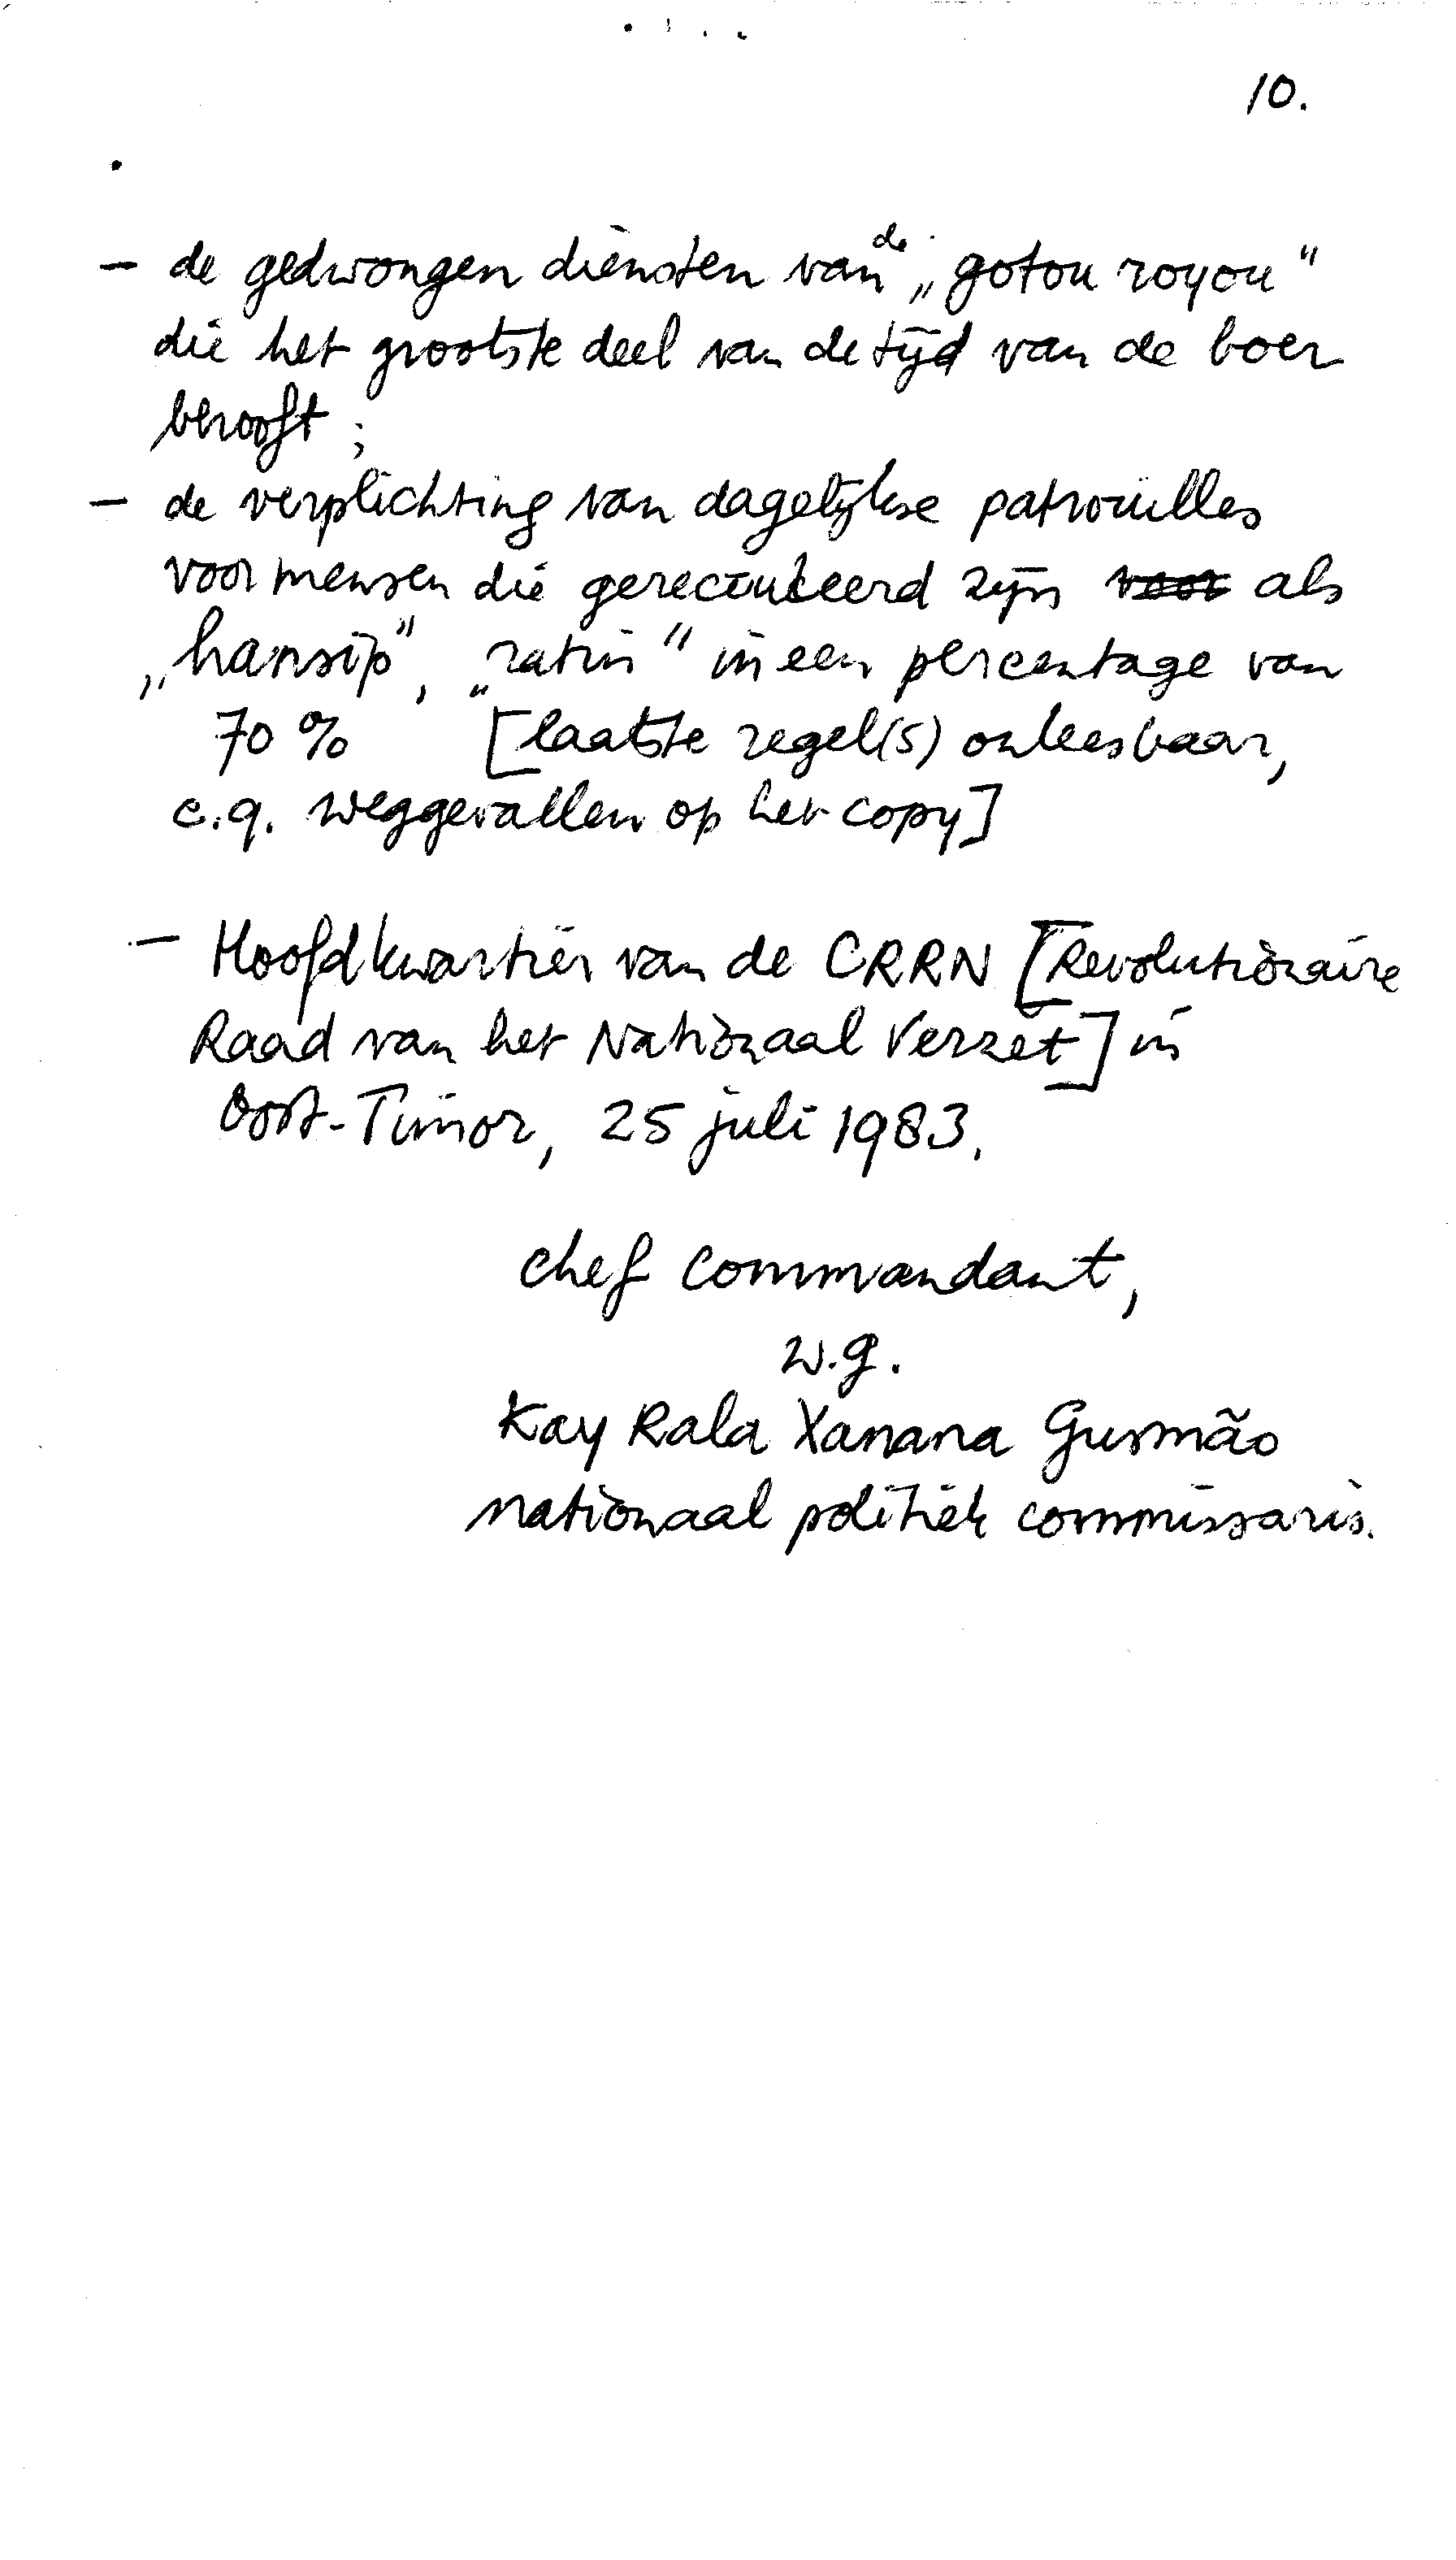 10.
– de gedwongen diensten van de „gotou royou"
die het grootste deel van de tijd van de boer
berooft ;
– de verplichting van dagelijkse patrouilles
voor mensen die gerecruteerd zijn voor als
„hansip", „ratih" in een percentage van
70 % [laatste regel(s) onleesbaar,
c.q. weggevallen op het copy]
– Hoofdkwartier van de CRRN [Revolutionaire
Raad van het Nationaal Verzet] in
Oost-Timor, 25 juli 1983.
chef commandant,
w.g.
Kay Rala Xanana Gusmão
nationaal politiek commissaris.